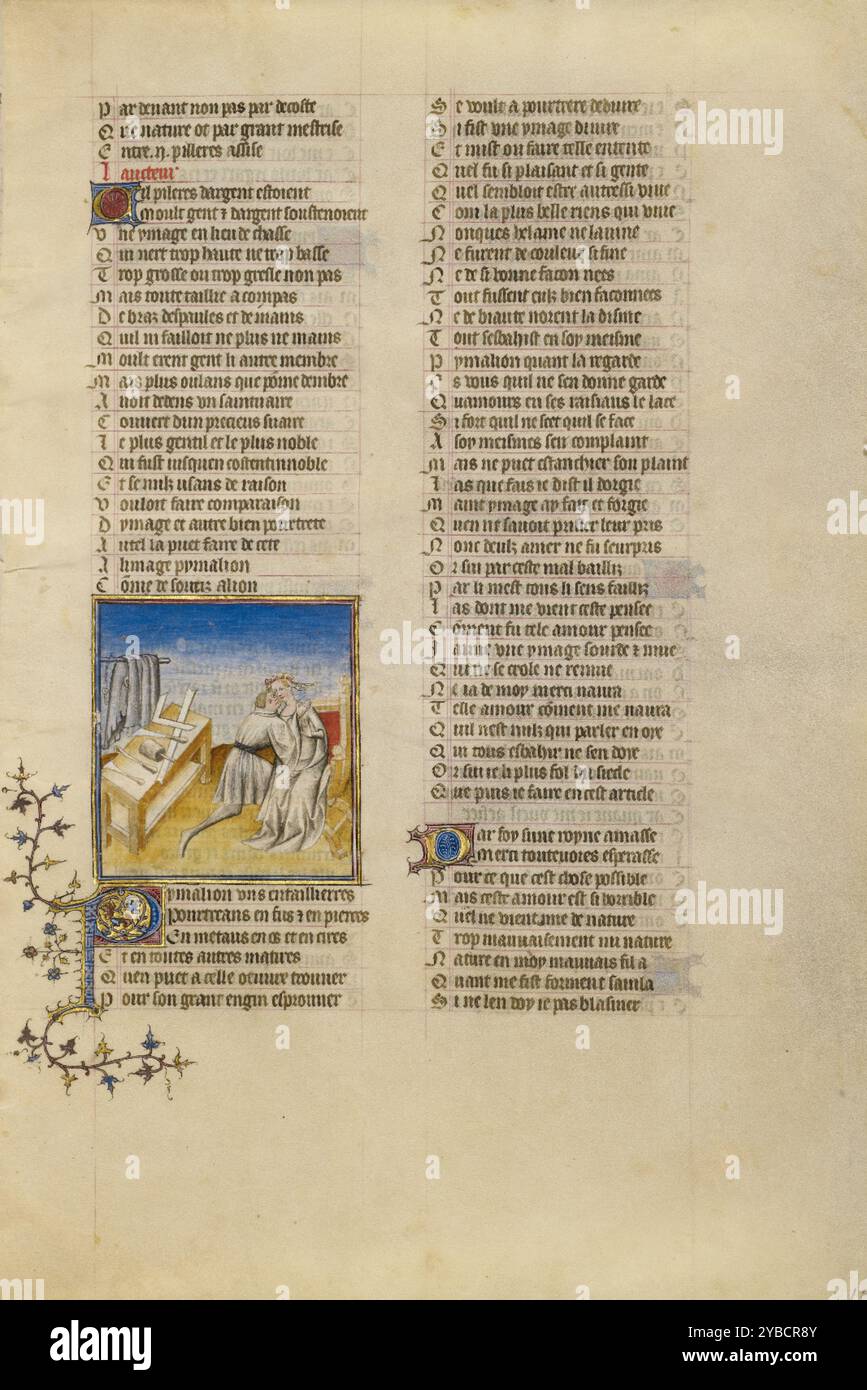 Par deuant non pas par decoste
Que nature ot par grant mestrise
Entre .ij. pilleres assise
Laucteur
Cil pileres dargent estoient
Moult gent & dargent soustenoient
Vne ymage en lieu de chasse
Qui nert trop haute ne trop basse
Trop grosse ou trop gresle non pas
Mais toute taillie a compas
De braz despaules et de mains
Quil ni failloit ne plus ne mains
Moult erent gent li autre membre
Mais plus oulans que pome dembre
Auoit dedens vn saintuaire
Couuert dun precieus suaire
Le plus gentil et le plus noble
Qui fust iusquen costentinnoble
Et se nulz usans de raison
Vouloit faire comparaison
Dymage et autre bien pourtrete
Autel la puet faire de cete
A limage pymalion
Come de souriz a lion
Pymalion vns entaillierres
Pourtreans en fus & en pierres
En metaus en os et en cires
Et en toutes autres matires
Quen puet a celle oeuure trouuer
Pour son grant engin esprouuer
Se voult a pourtrere deduire
Si fist vne ymage diuire
Et mist ou faire telle entente
Quel fu si plaisant et si gente
Quel sembloit estre autressi viue
Com la plus belle riens qui viue
Nonques helaine ne lauine
Ne furent de couleur si fine
Ne de si bonne facon nees
Tout fussent eulz bien faconnees
Ne de biaute norent la disme
Tout sesbahist en soy meisme
Pymalion quant la regarde
Es vous quil ne sen donne garde
Quamours en ses raisiaus le lace
Si fort quil ne scet quil se face
A soy meismes sen complaint
Mais ne puet estanchier son plaint
Las que fais ie dist il dorgie
Maint ymage ay fait et forgie
Quen ne sauoit prisier leur pris
Nonc deulz amer ne fu seurpris
Or sui par ceste mal bailliz
Par li mest tous li sens failliz
Las dont me vient ceste pensee
Coment fu tele amour pensee
Jaime vne ymage sourde & mue
Qui ne se crole ne remue
Ne ia de moy merci naura
Telle amour coment me naura
Quil nest nulz qui parler en oye
Qui tous esbahir ne sen doye
Or sui ie li plus fol du siecle
Que puis ie faire en cest article
Par foy sunt royne amasse
Merci toutevoies esperasse
Pour ce que cest chose possible
Mais ceste amour est si horrible
Quel ne vient mie de nature
Trop mauuaisement mi nature
Nature en moy mauuais fil a
Quant me fist forment sauila
Si ne len doy ie pas blasmer
alamy
Image ID: 2YBCR8Y
www.alamy.com